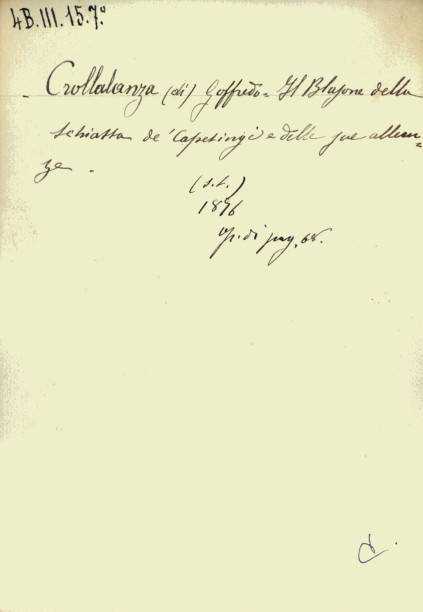 4B.III.15.7.º
Crollalanza (di) Goffredo = Il Blasone della
schiatta de' Capetingi e delle sue allean=
ze.
(s.t.)
1876
op. di pag. 68.